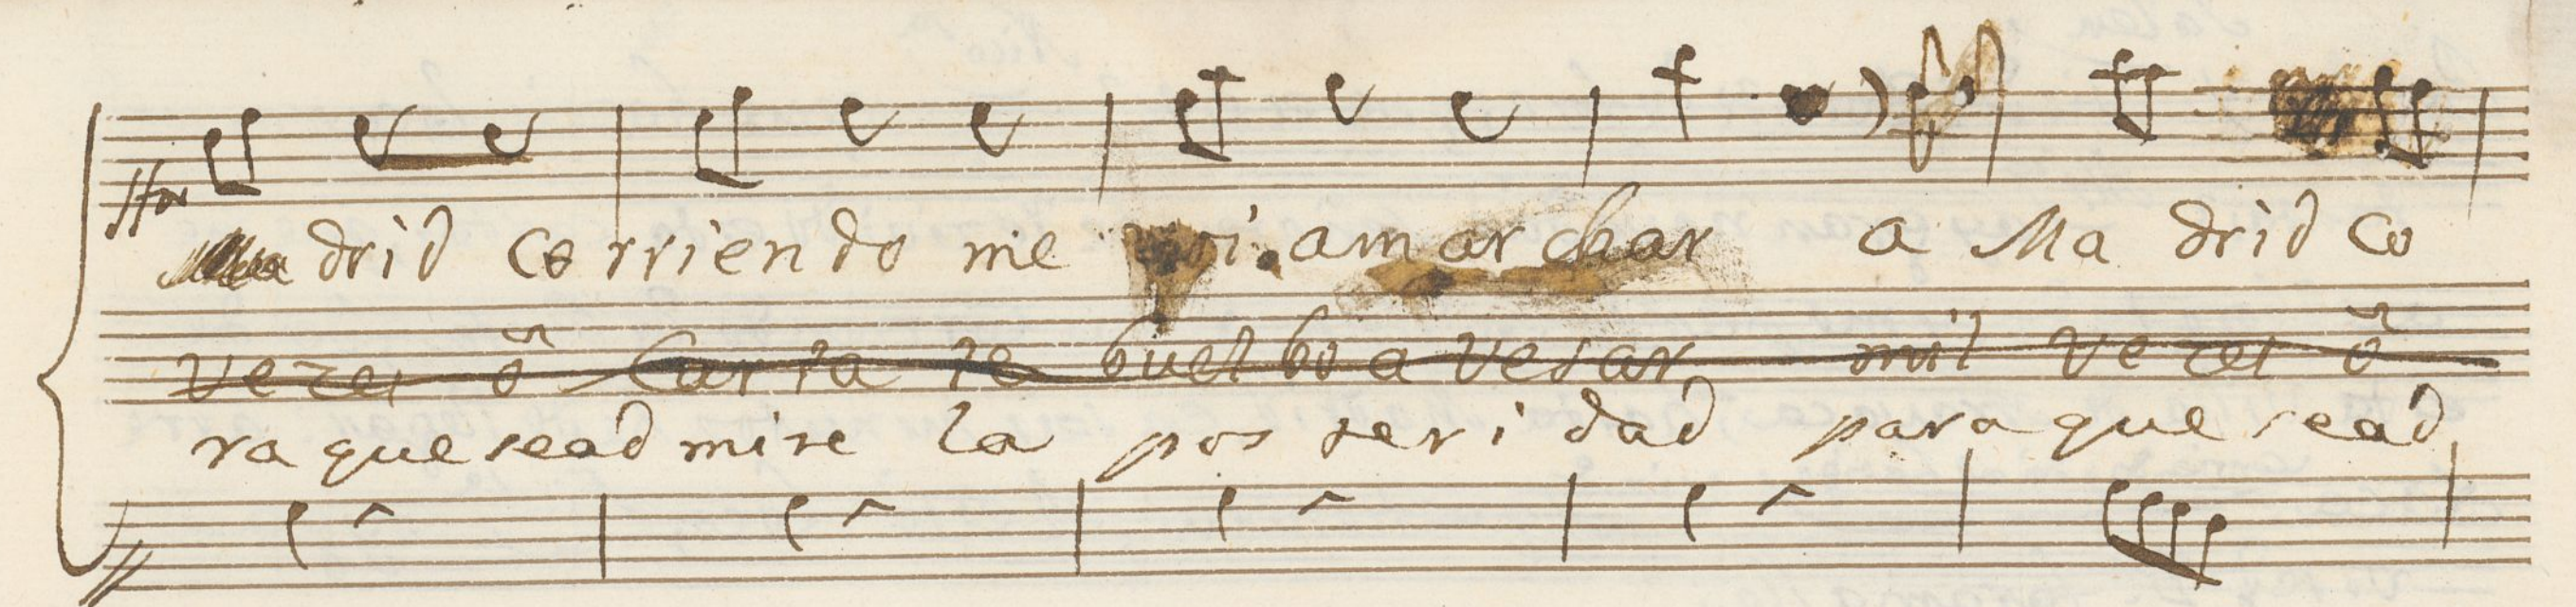 Ma drid Co rrien do me voi. a mar char a Ma drid Co
Vezes ô Carta te buelbo a vesar mil vezes ô
ra que sead mire la pos teri dad para que sead